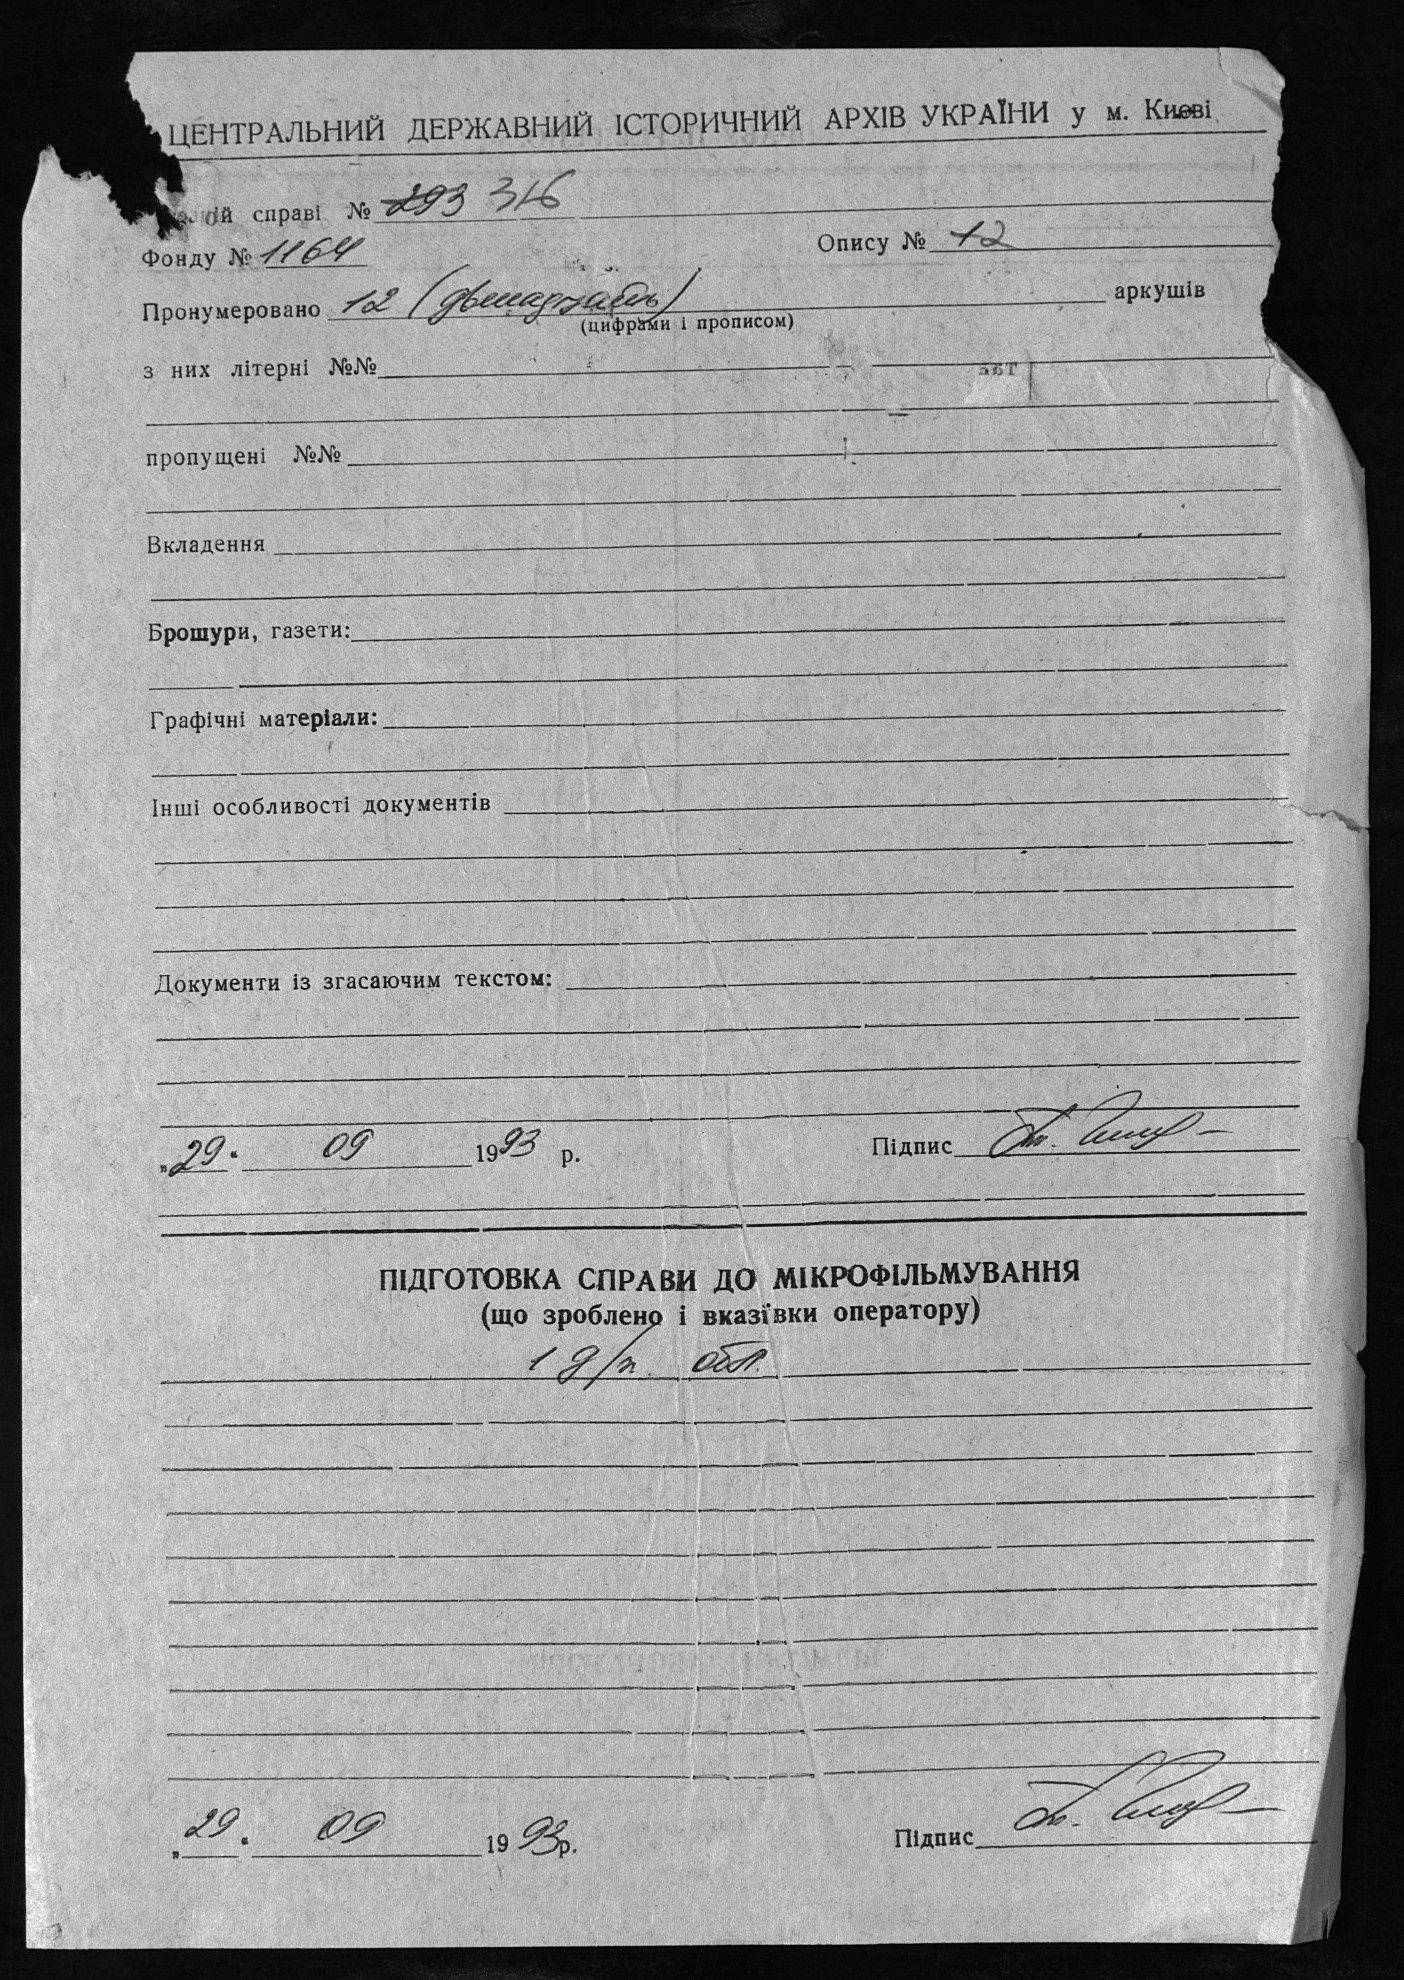 ЦЕНТРАЛЬНИЙ ДЕРЖАВНИЙ ІСТОРИЧНИЙ АРХІВ УКРАЇНИ у м. Києві
справі № 293 316
Фонду № 1164 Опису № 12
Пронумеровано 12 (двенадцать) аркушів
(цифрами і прописом)
з них літерні №№
пропущені №№
Вкладення
Брошури, газети:
Графічні матеріали:
Інші особливості документів
Документи із згасаючим текстом:
„29“ 09 1993 р. Підпис
ПІДГОТОВКА СПРАВИ ДО МІКРОФІЛЬМУВАННЯ
(що зроблено і вказівки оператору)
1 д/п.
„29“ 09 1993р. Підпис